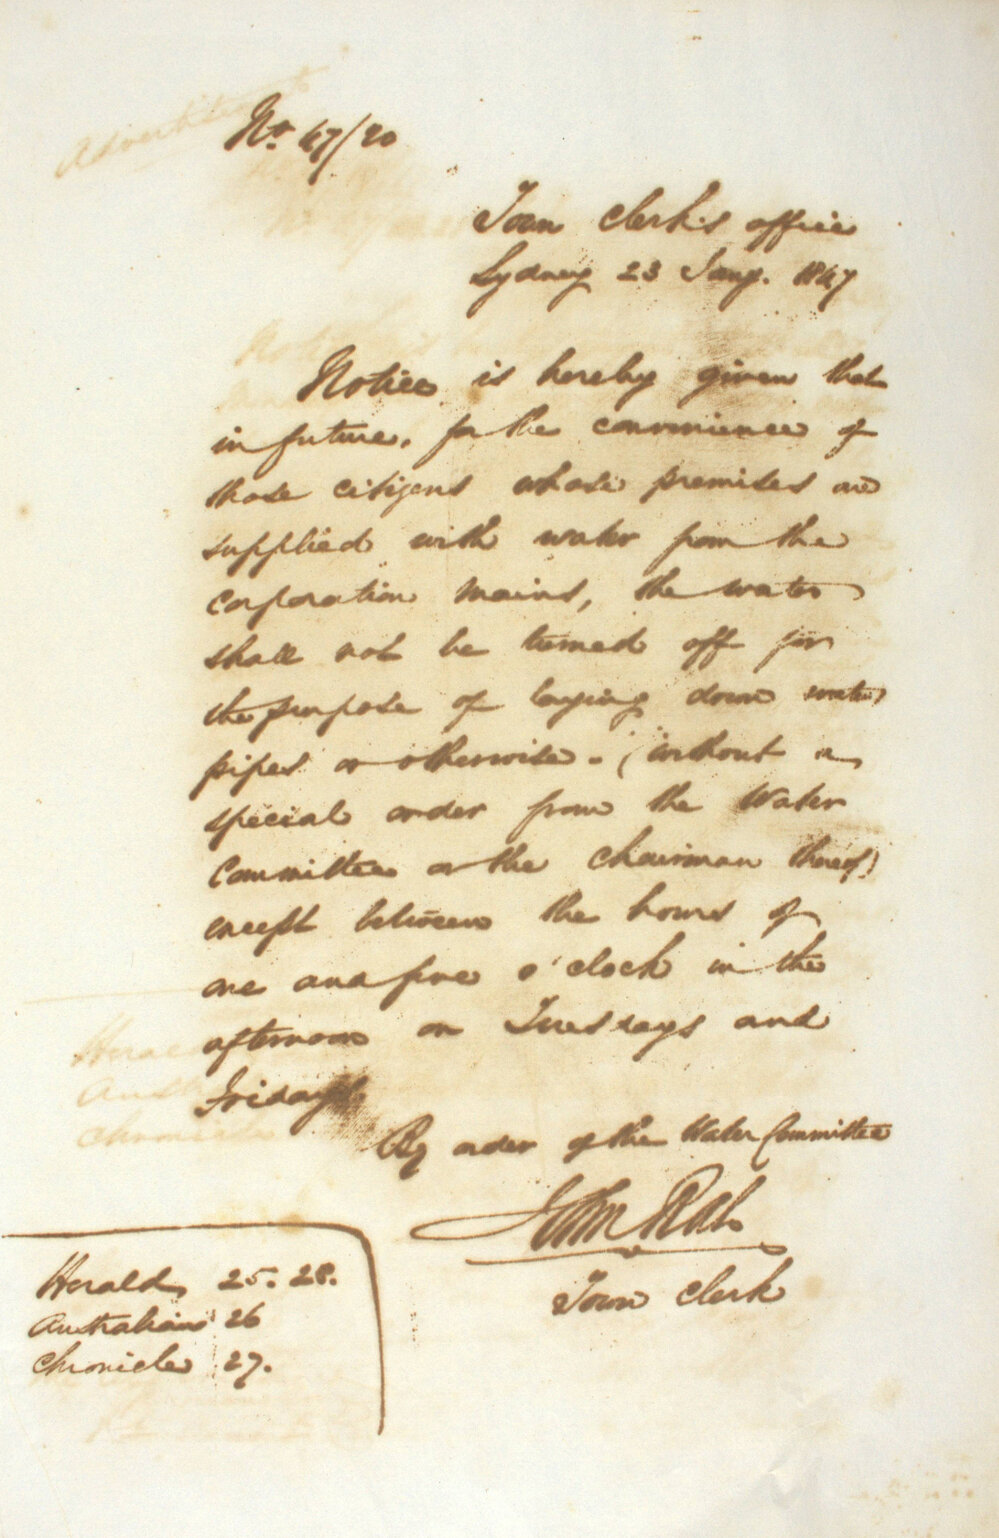 Advertisement
No. 47/20
Town Clerk's office
Sydney 23 Jany. 1847
Notice is hereby given that
in future, for the convenience of
those citizens whose premises are
supplied with water from the
corporation mains, the water
shall not be turned off for
the purpose of laying down water
pipes or otherwise. (without a
special order from the Water
Committee or the chairman thereof)
except between the hours of
one and five o'clock in the
afternoon on Tuesdays and
Fridays.
By order of the Water Committee
John Rae
Town Clerk
Herald 25. 28.
Australian 26
Chronicle 27.